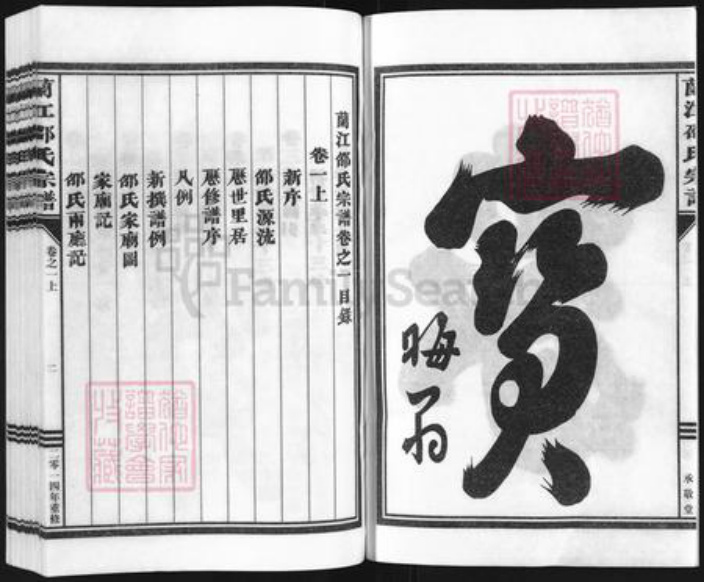 蘭江邵氏宗譜
承敬堂
寶
晦翁
蘭江邵氏宗譜卷之一目錄
卷一上
新序
邵氏源流
歷世里居
歷修譜序
凡例
新撰譜例
邵氏家廟圖
家廟記
邵氏兩廳記
蘭江邵氏宗譜
卷之一上
二
二零一四年重修
FamilySearch